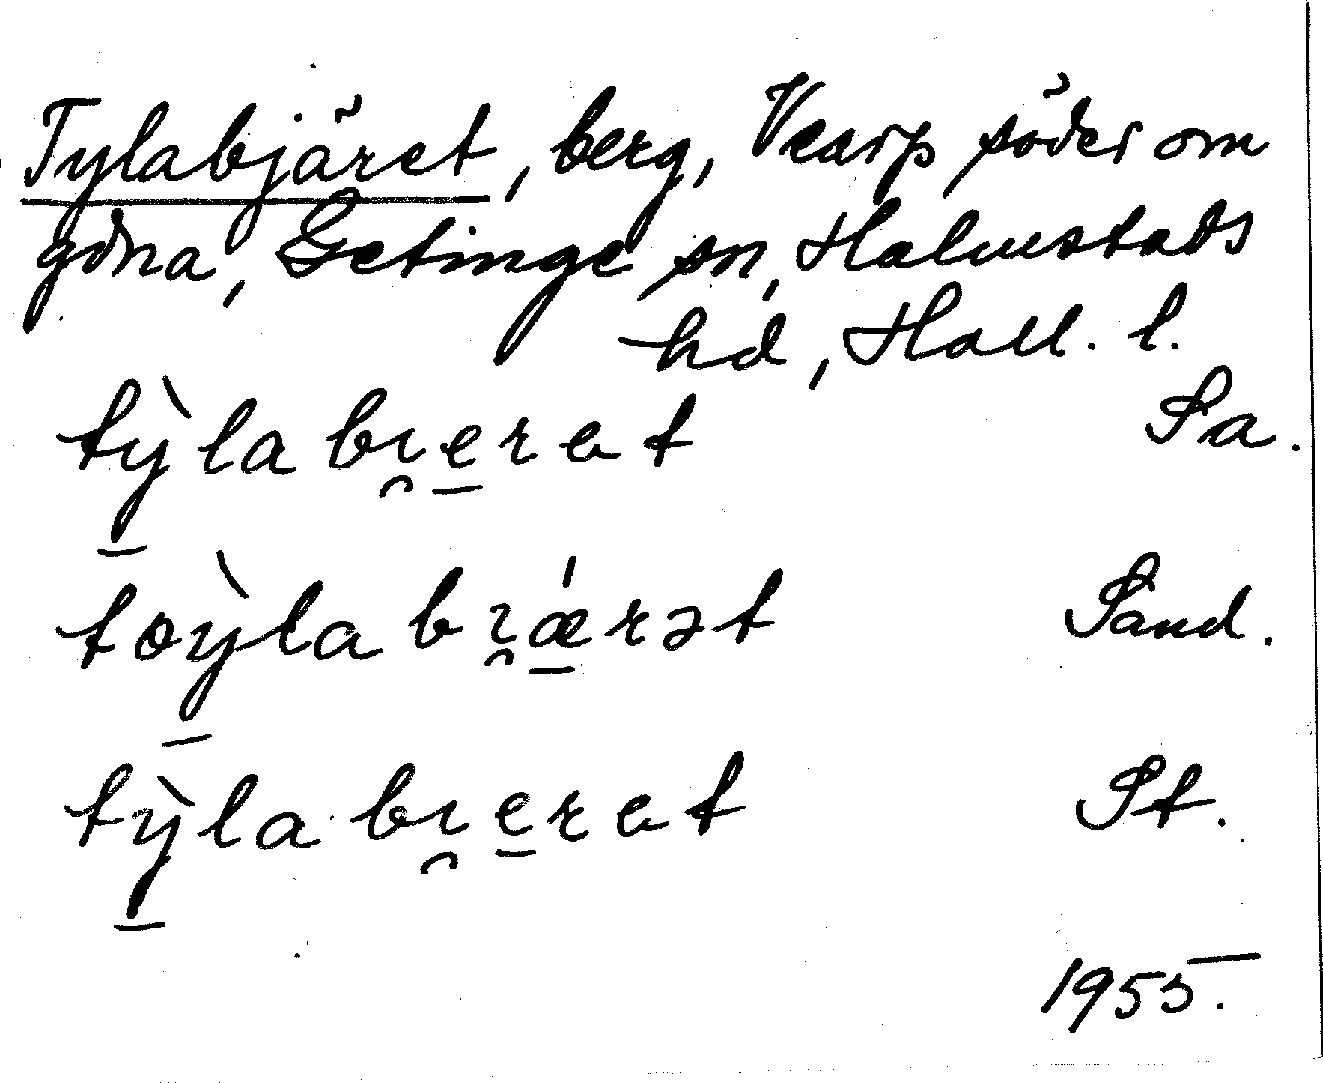 Tylabjäret, berg, Vearp söder om
gdna, Getinge sn, Halmstads
hd, Hall. l.
tỳ̱labı̯e̱rat Sa.
toỳ̱labı̯ǽ̱rət Sand.
tỳ̱labı̯e̱rat St.
1955.